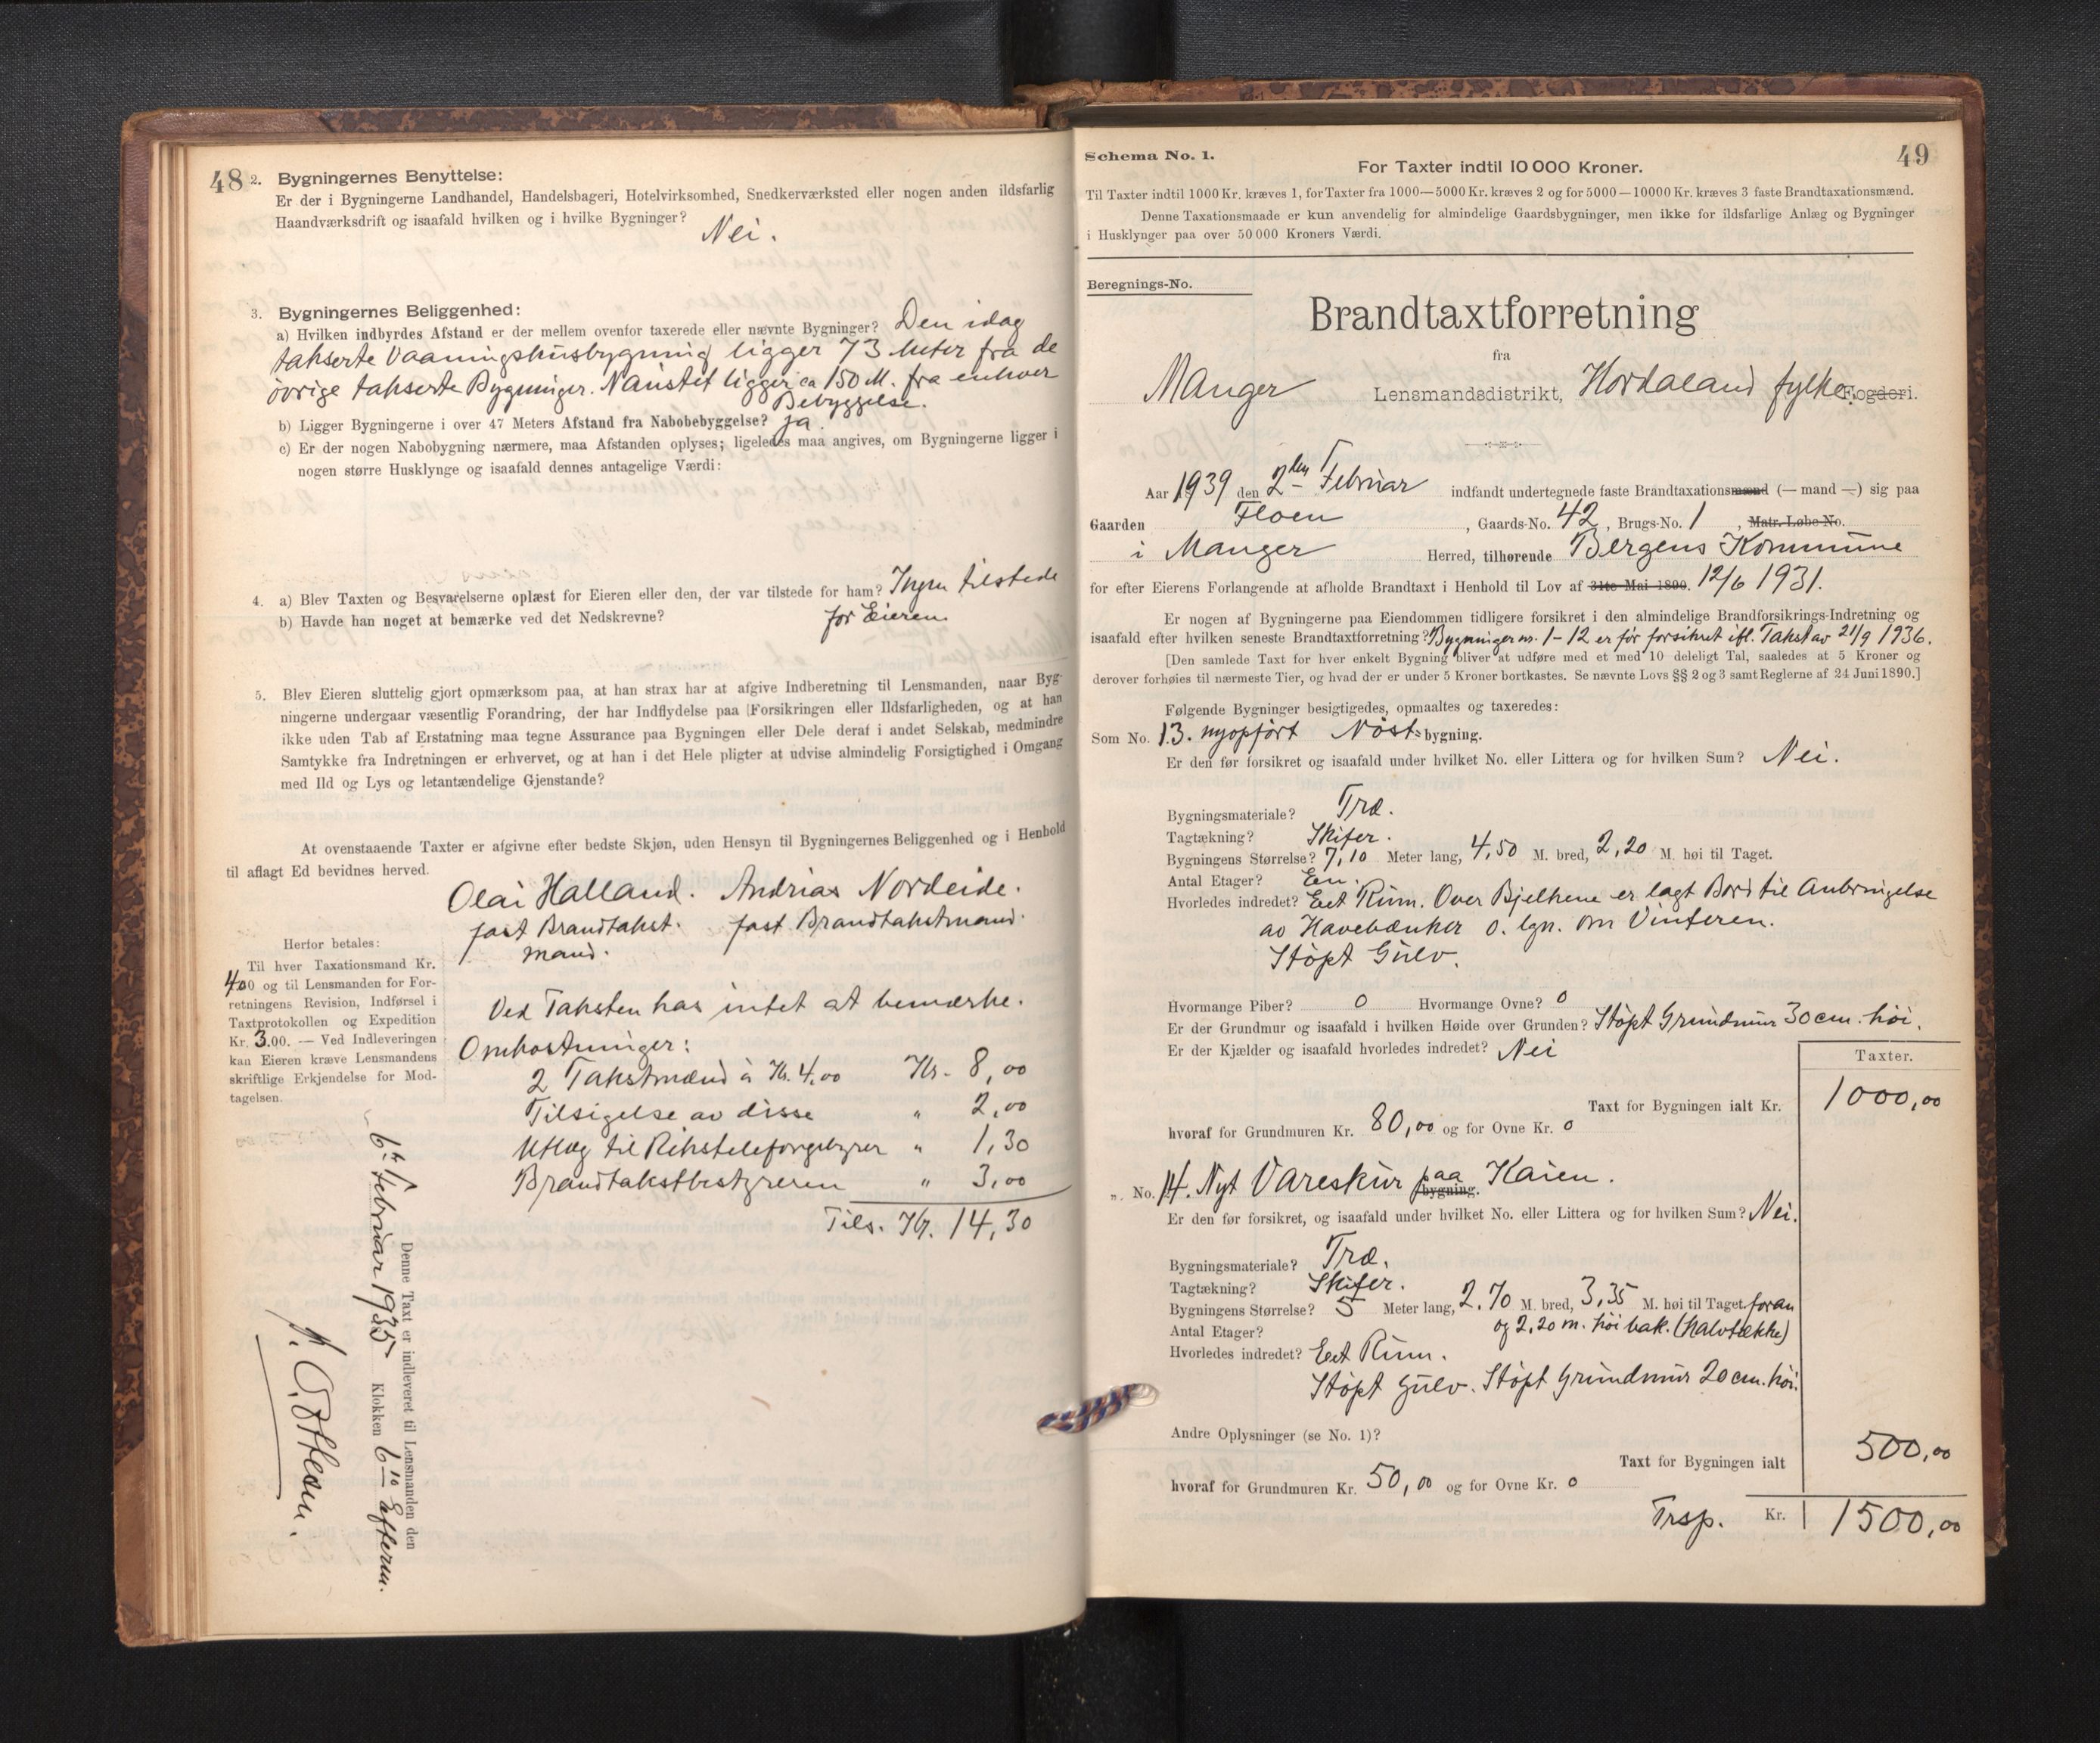 48
2. Bygningernes Benyttelse:
Er der i Bygningerne Landhandel, Handelsbageri, Hotelvirksomhed, Snedkerværksted eller nogen anden ildsfarlig
Haandværksdrift og isaafald hvilken og i hvilke Bygninger?
Nei.
3. Bygningernes Beliggenhed:
a) Hvilken indbyrdes Afstand er der mellem ovenfor taxerede eller nævnte Bygninger? Den idag
takserte Vaaningshusbygning ligger 73 Meter fra de
övrige takserte Bygninger. Naustet ligger ca 150 M. fra enhver
Bebyggelse.
b) Ligger Bygningerne i over 47 Meters Afstand fra Nabobebyggelse? Ja.
c) Er der nogen Nabobygning nærmere, maa Afstanden oplyses; ligeledes maa angives, om Bygningerne ligger i
nogen større Husklynge og isaafald dennes antagelige Værdi:
4. a) Blev Taxten og Besvarelserne oplæst for Eieren eller den, der var tilstede for ham? Ingen tilstede
b) Havde han noget at bemærke ved det Nedskrevne? for Eieren
5. Blev Eieren sluttelig gjort opmærksom paa, at han strax har at afgive Indberetning til Lensmanden, naar Byg-
ningerne undergaar væsentlig Forandring, der har Indflydelse paa Forsikringen eller Ildsfarligheden, og at han
ikke uden Tab af Erstatning maa tegne Assurance paa Bygningen eller Dele deraf i andet Selskab, medmindre
Samtykke fra Indretningen er erhvervet, og at han i det Hele pligter at udvise almindelig Forsigtighed i Omgang
med Ild og Lys og letantændelige Gjenstande?
At ovenstaaende Taxter er afgivne efter bedste Skjøn, uden Hensyn til Bygningernes Beliggenhed og i Henhold
til aflagt Ed bevidnes herved.
Olai Halland. Andrias Nordeide.
fast Brandtakst. fast Brandtakstmand.
mand.
Herfor betales:
Til hver Taxationsmand Kr.
4.00 og til Lensmanden for For-
retningens Revision, Indførsel i
Taxtprotokollen og Expedition
Kr. 3.00. — Ved Indleveringen
kan Eieren kræve Lensmandens
skriftlige Erkjendelse for Mod-
tagelsen.
Ved Taksten has intet at bemærke.
Omkostninger:
2 Takstmænd à Kr. 4,00 Kr. 8,00
Tilsigelse av disse " 2,00
Utlæg til Rikstelefongebyrer " 1,30
Brandtakstbestyreren " 3,00
Tils. Kr. 14,30
Denne Taxt er indleveret til Lensmanden den
6te Februar 1935 Klokken 6 10 Efterm.
49
Schema No. 1.
For Taxter indtil 10 000 Kroner.
Til Taxter indtil 1000 Kr. kræves 1, for Taxter fra 1000—5000 Kr. kræves 2 og for 5000—10000 Kr. kræves 3 faste Brandtaxationsmænd.
Denne Taxationsmaade er kun anvendelig for almindelige Gaardsbygninger, men ikke for ildsfarlige Anlæg og Bygninger
i Husklynger paa over 50 000 Kroners Værdi.
Beregnings-No.
Brandtaxtforretning
fra
Manger Lensmandsdistrikt, Hordaland fylke. Fogderi.
Aar 1939 den 2den Februar indfandt undertegnede faste Brandtaxationsmænd (— mand —) sig paa
Gaarden Floen, Gaards-No. 42, Brugs-No. 1, Matr. Løbe-No.
i Manger Herred, tilhørende Bergens Kommune
for efter Eierens Forlangende at afholde Brandtaxt i Henhold til Lov af 31te Mai 1890. 12/6 1931.
Er nogen af Bygningerne paa Eiendommen tidligere forsikret i den almindelige Brandforsikrings-Indretning og
isaafald efter hvilken seneste Brandtaxtforretning? Bygninger nr. 1-12 er før forsikret ifl. Takst av 21/9 1936.
[Den samlede Taxt for hver enkelt Bygning bliver at udføre med et med 10 deleligt Tal, saaledes at 5 Kroner og
derover forhøies til nærmeste Tier, og hvad der er under 5 Kroner bortkastes. Se nævnte Lovs §§ 2 og 3 samt Reglerne af 24 Juni 1890.]
Følgende Bygninger besigtigedes, opmaaltes og taxeredes:
Som No. 13. nyopført Nöst-bygning.
Er den før forsikret og isaafald under hvilket No. eller Littera og for hvilken Sum? Nei.
Bygningsmateriale? Træ.
Tagtækning? Skifer.
Bygningens Størrelse? 7,10 Meter lang, 4,50 M. bred, 2,20 M. høi til Taget.
Antal Etager? En.
Hvorledes indredet? Eet Rum. Over Bjelkene er lagt Bord til Anbringelse
av Havebænker o. lgn. om Vinteren.
Støpt Gulv.
Hvormange Piber? 0 Hvormange Ovne? 0
Er der Grundmur og isaafald i hvilken Høide over Grunden? Støpt Grundmur 30 cm. høi.
Er der Kjælder og isaafald hvorledes indredet? Nei
Taxter.
Taxt for Bygningen ialt Kr. 1000,00
hvoraf for Grundmuren Kr. 80,00 og for Ovne Kr. 0
„ No. 14. Nyt Vareskur paa bygning. Kaien.
Er den før forsikret, og isaafald under hvilket No. eller Littera og for hvilken Sum? Nei.
Bygningsmateriale? Træ.
Tagtækning? Skifer.
Bygningens Størrelse? 5 Meter lang, 2.70 M. bred, 3,35 M. høi til Taget foran
Antal Etager? og 2,20 m. høi bak. (halvtække)
Hvorledes indredet? Eet Rum.
Støpt Gulv. Støpt Grundmur 20 cm. høi.
Andre Oplysninger (se No. 1)?
Taxt for Bygningen ialt 500,00
hvoraf for Grundmuren Kr. 50,00 og for Ovne Kr. 0
Trsp. Kr. 1500,00